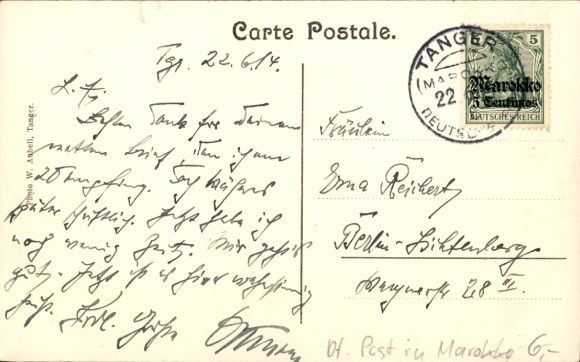 Carte Postale.
Tgr. 22.6.14.
L. F.
Besten Dank für Deinen
netten Brief, den ich am
20 empfing. Noch Näheres
später schriftlich. Jetzt habe ich
noch wenig Zeit. Mir geht's
gut. Jetzt ist es hier
heiß. Frdl. Grüße
Photo W. Aubell, Tanger.
TANGER
(MAROCCO)
22
DEUTSCHE
5
Marokko
5 Centimos
DEUTSCHES REICH
Fräulein
Erna Reichert
Berlin-Lichtenberg
28 III
Dt. Post in Marokko 6,-